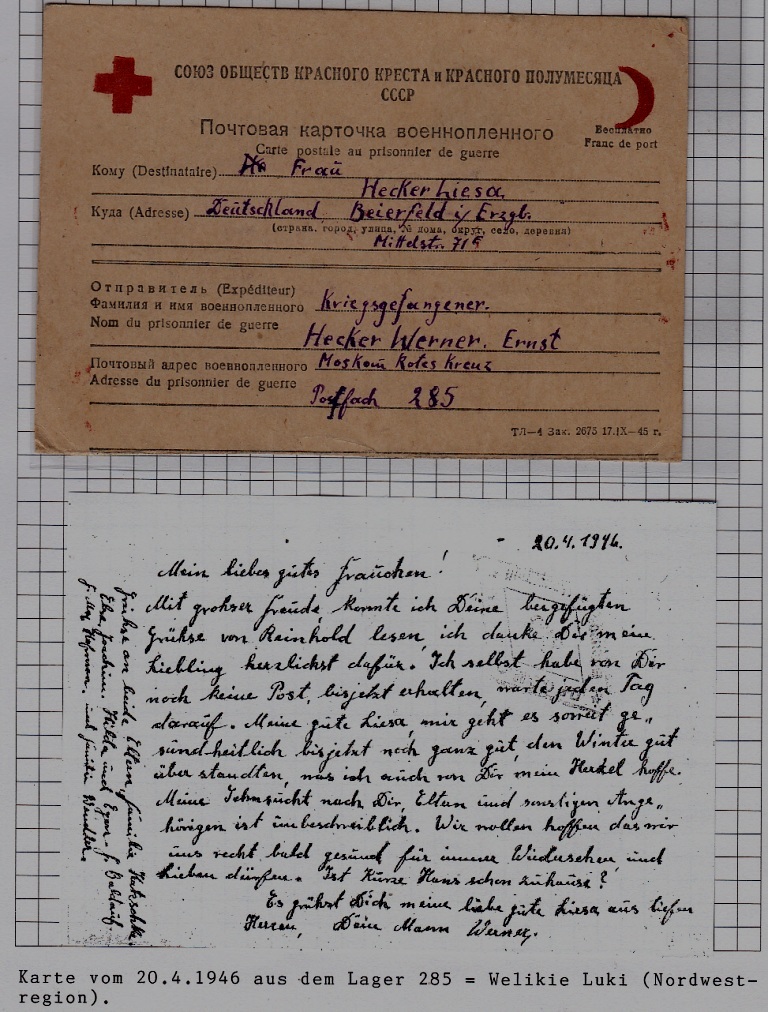 СОЮЗ ОБЩЕСТВ КРАСНОГО КРЕСТА и КРАСНОГО ПОЛУМЕСЯЦА
СССР
Почтовая карточка военнопленного
Carte postale au prisonnier de guerre
Бесплатно
Franc de port
Кому (Destinataire) Frau
Hecker Liesa.
Куда (Adresse) Deutschland Beierfeld i/Erzgb.
(страна, город, улица, № дома, округ, село, деревня)
Mittelstr. 71
Отправитель (Expéditeur)
Фамилия и имя военнопленного Kriegsgefangener.
Nom du prisonnier de guerre
Hecker Werner. Ernst
Почтовый адрес военнопленного Moskau Rotes Kreuz
Adresse du prisonnier de guerre
Postfach 285
ТЛ—4 Зак. 2675 17.IX—45 г.
20.4.1946.
Mein liebes gutes Frauchen!
Mit grohser Freude, konnte ich Deine beigefügten
Grühse von Reinhold lesen, ich danke Dir mein
Liebling herzlichst dafür. Ich selbst habe von Dir
noch keine Post bisjetzt erhalten, warte jeden Tag
darauf. Meine gute Liesa, mir geht es soweit ge„
sundheitlich bisjetzt noch ganz gut, den Winter gut
über standten, was ich auch von Dir mein hoffe.
Meine Sehnsucht nach Dir, Eltern und sonstigen Ange„
hörigen ist unbeschreiblich. Wir wollen hoffen das wir
uns recht bald gesund für immer Wiedersehen und
lieben dürfen. Ist Kurze Hans schon zuhause?
Es grühst Dich meine liebe gute Liesa aus tiefen
Herzen, Dein Mann Werner.
Grühse an beide Eltern, Familie
Elsa, Joachim. Hilda und Egon.
und Familie
Karte vom 20.4.1946 aus dem Lager 285 = Welikie Luki (Nordwest-
region).